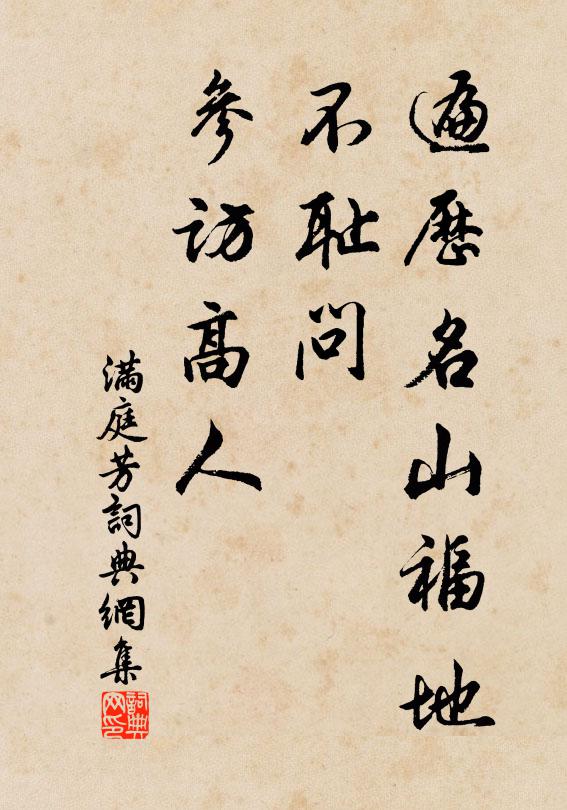 遍歷名山福地
不耻問
參訪高人
滿庭芳詞典網集
詞典
网印